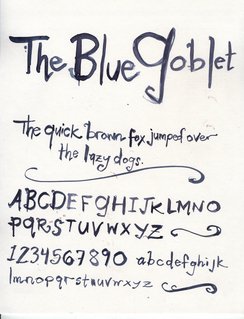 The Blue Goblet
The quick brown fox jumped over
the lazy dogs.
ABCDEFGHIJKLMNO
PQRSTUVWXYZ
1234567890 abcdefghijk
lmnopqrstuvwxyz